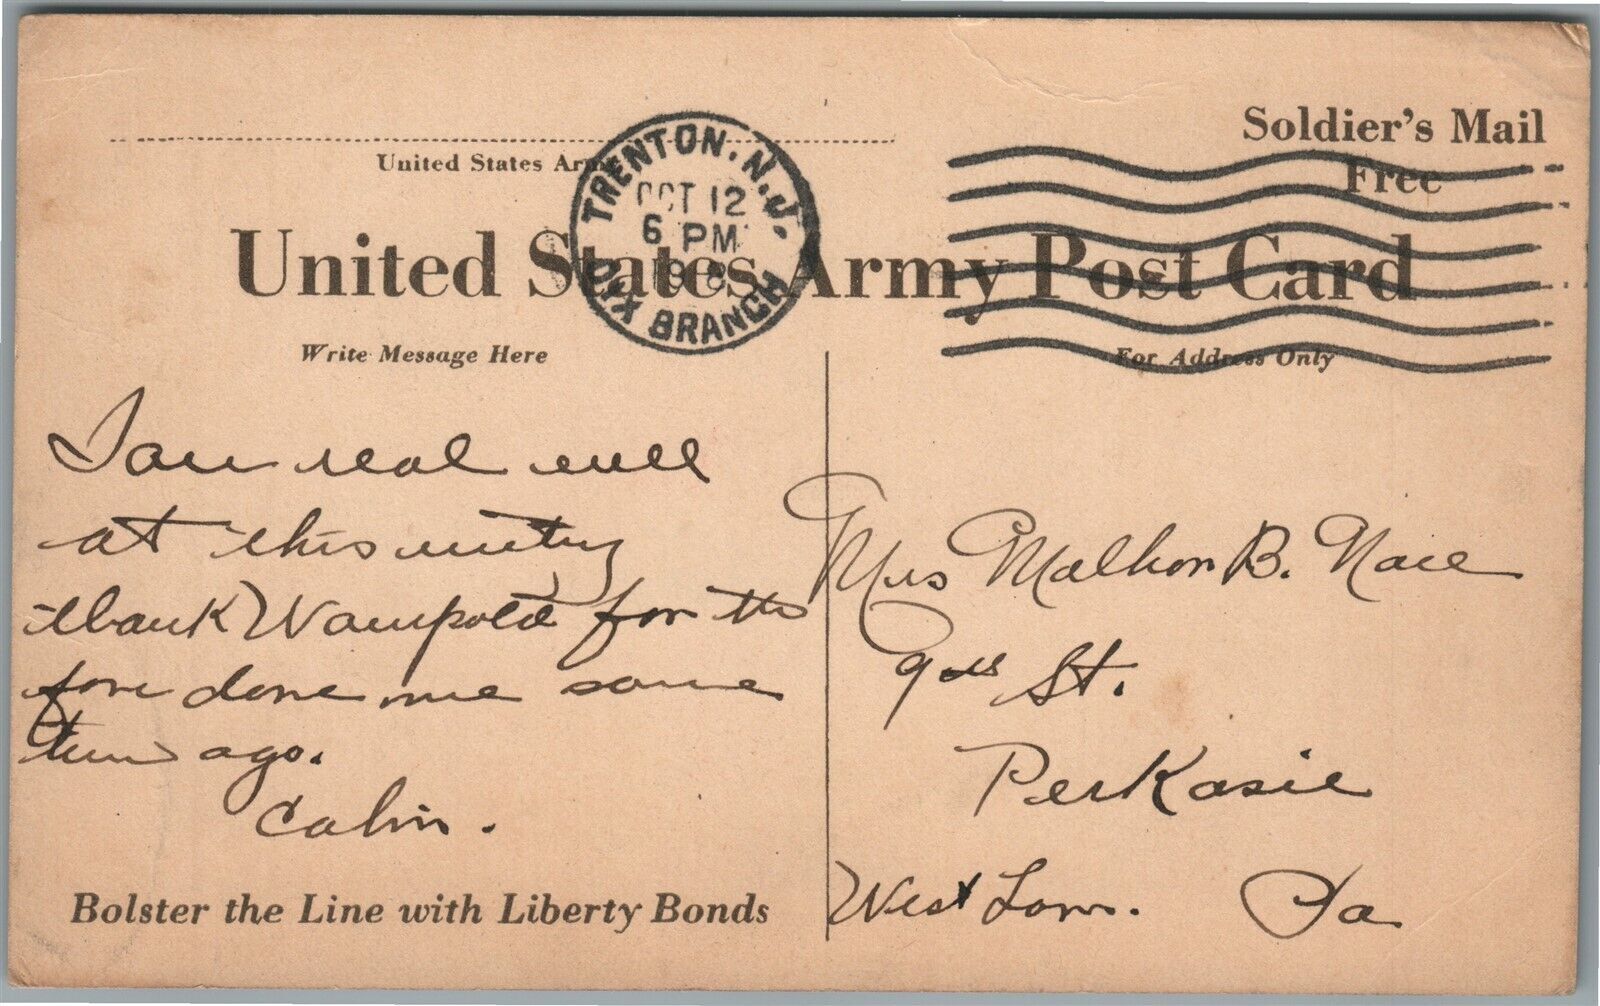 Soldier's Mail
Free
United States Army
TRENTON, N.J.
OCT 12
6 PM
1918
DIX BRANCH
United States Army Post Card
Write Message Here
For Address Only
I am real well
at this writing
thank Wampold for the
done me some
time ago.
Calvin.
Mrs Mathon B. Nace
9th St.
Perkasie
West Pa
Bolster the Line with Liberty Bonds